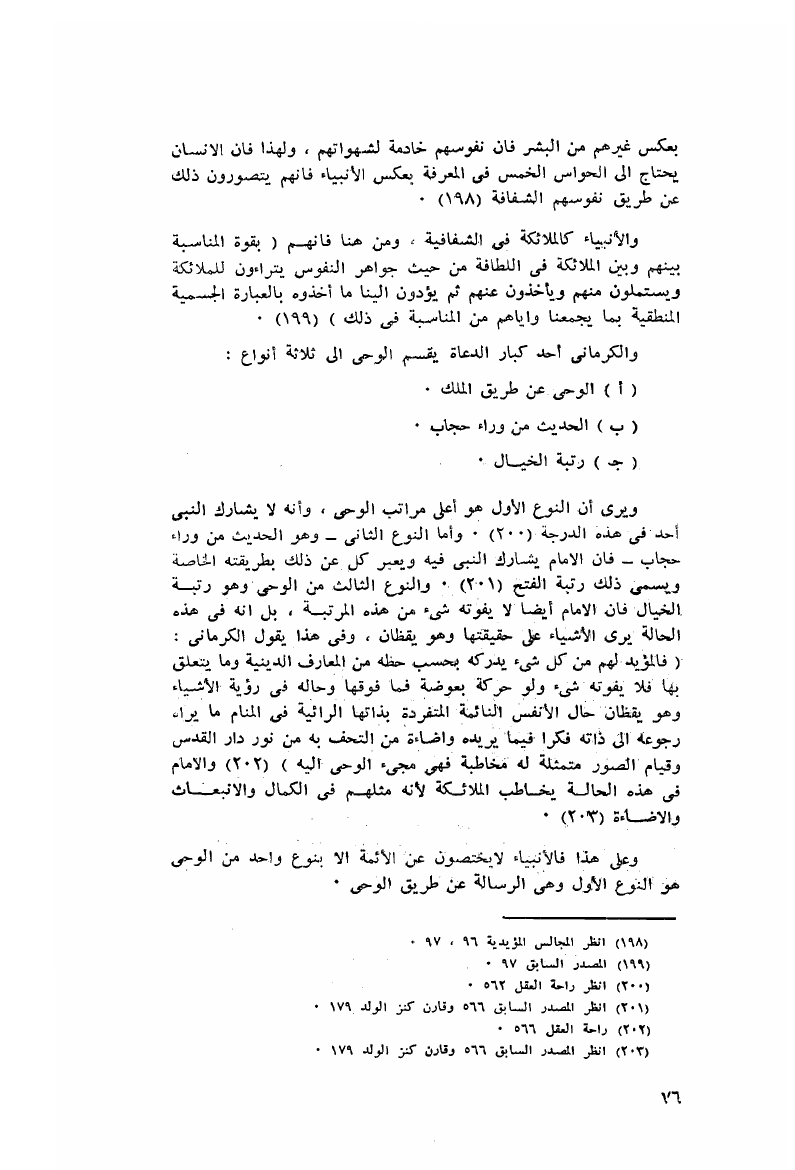 بعكس غيرهم من البشر فان نفوسهم خادمة لشهواتهم ، ولهذا فان الانسان
يحتاج الى الحواس الخمس فى المعرفة بعكس الأنبياء فانهم يتصورون ذلك
عن طريق نفوسهم الشفافة (١٩٨) ٠
والأنبياء كالملائكة فى الشفافية ، ومن هنا فانهم ( بقوة المناسبة
بينهم وبين الملائكة فى اللطافة من حيث جواهر النفوس يتراءون للملائكة
ويستملون منهم ويأخذون عنهم ثم يؤدون الينا ما أخذوه بالعبارة الجسمية
المنطقية بما يجمعنا واياهم من المناسبة فى ذلك ) (١٩٩) ٠
والكرمانى أحد كبار الدعاة يقسم الوحى الى ثلاثة أنواع :
( أ ) الوحى عن طريق الملك ٠
( ب ) الحديث من وراء حجاب ٠
( جـ ) رتبة الخيال ٠
ويرى أن النوع الأول هو أعلى مراتب الوحى ، وأنه لا يشارك النبى
أحد فى هذه الدرجة (٢٠٠) ٠ وأما النوع الثانى – وهو الحديث من وراء
حجاب – فان الامام يشارك النبى فيه ويعبر كل عن ذلك بطريقته الخاصة
ويسمى ذلك رتبة الفتح (٢٠١) ٠ والنوع الثالث من الوحى وهو رتبة
الخيال فان الامام أيضا لا يفوته شىء من هذه المرتبة ، بل انه فى هذه
الحالة يرى الأشياء على حقيقتها وهو يقظان ، وفى هذا يقول الكرمانى :
( فالمؤيد لهم من كل شىء يدركه بحسب حظه من المعارف الدينية وما يتعلق
بها فلا يفوته شىء ولو حركة بعوضة فما فوقها وحاله فى رؤية الأشياء
وهو يقظان حال الأنفس النائمة المتفردة بذاتها الرائية فى المنام ما يراه
رجوعه الى ذاته فكرا فيما يريده واضاءة من التحف به من نور دار القدس
وقيام الصور متمثلة له مخاطبة فهى مجىء الوحى اليه ) (٢٠٢) والامام
فى هذه الحالة يخاطب الملائكة لأنه مثلهم فى الكمال والانبعاث
والاضاءة (٢٠٣) ٠
وعلى هذا فالأنبياء لايختصون عن الأئمة الا بنوع واحد من الوحى
هو النوع الأول وهى الرسالة عن طريق الوحى ٠
(١٩٨) انظر المجالس المؤيدية ٩٦ ، ٩٧ ٠
(١٩٩) المصدر السابق ٩٧ ٠
(٢٠٠) انظر راحة العقل ٥٦٢ ٠
(٢٠١) انظر المصدر السابق ٥٦٦ وقارن كنز الولد ١٧٩ ٠
(٢٠٢) راحة العقل ٥٦٦ ٠
(٢٠٣) انظر المصدر السابق ٥٦٦ وقارن كنز الولد ١٧٩ ٠
٧٦